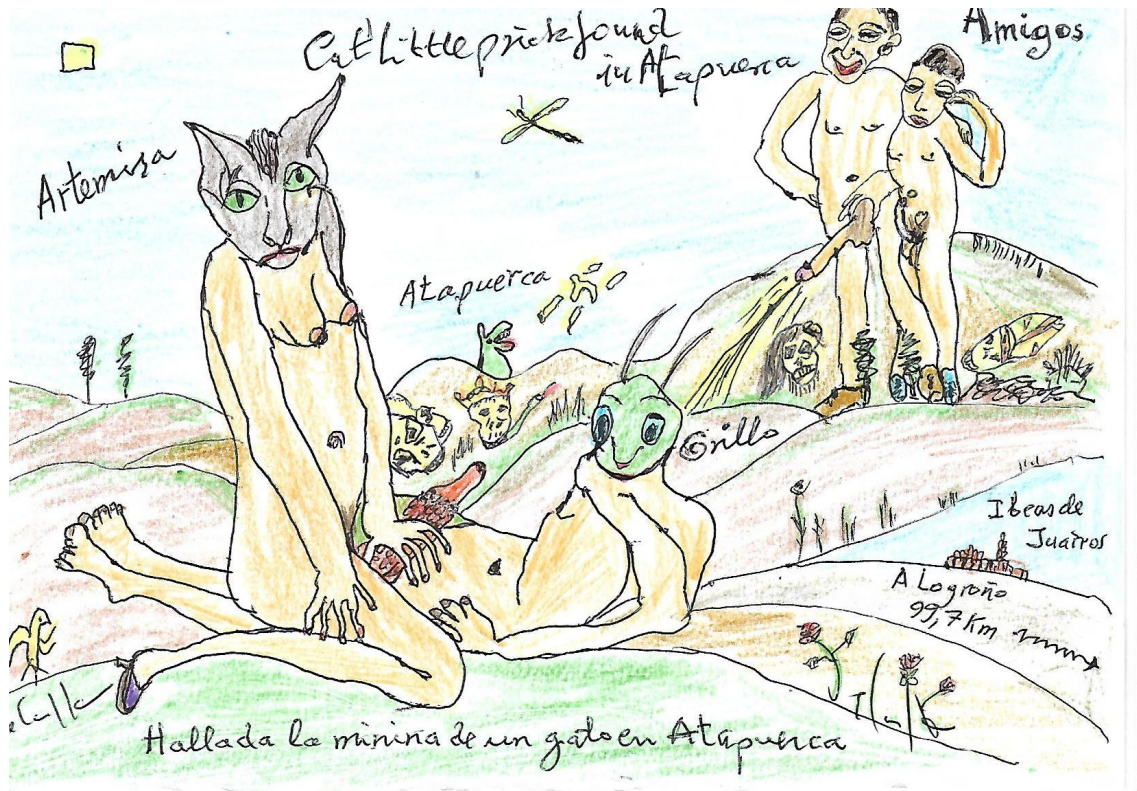 Cat Little prick found
in Atapuerca
Amigos
Artemisa
Atapuerca
Grillo
Ibeas de
Juarros
A Logroño
99,7 Km
Hallada la minina de un gato en Atapuerca